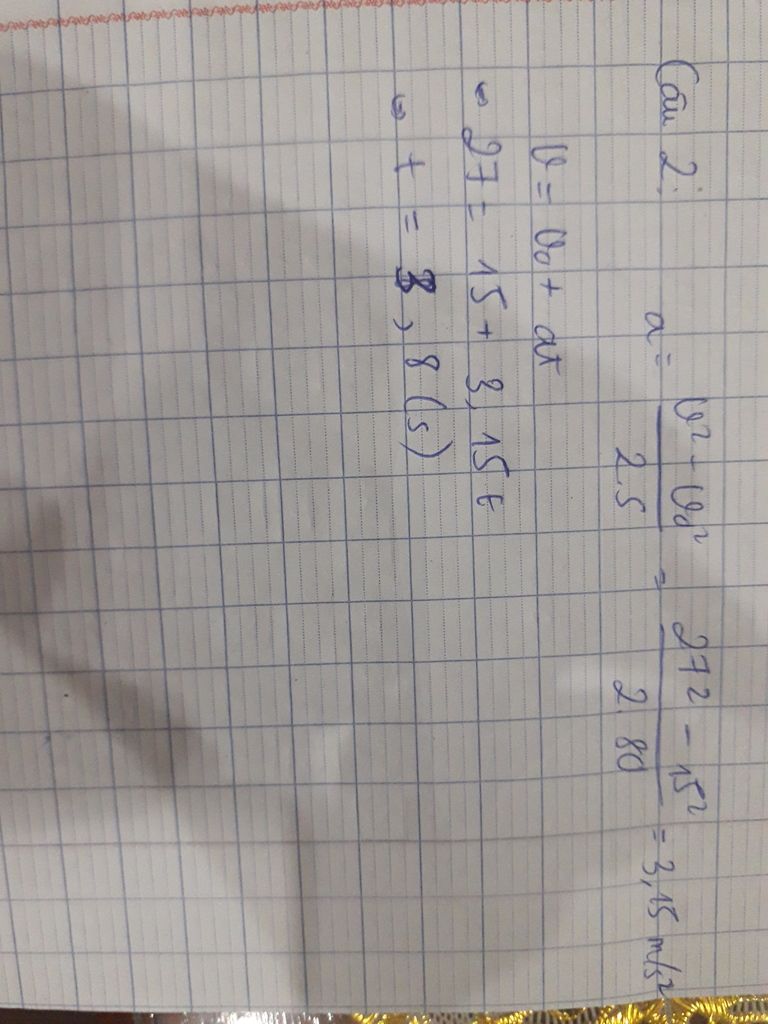 Câu 2:
a = v² - v₀² / 2.S = 27² - 15² / 2.80 = 3,15 m/s²
v = v₀ + at
⇔ 27 = 15 + 3,15t
⇔ t = 3,8 (s)